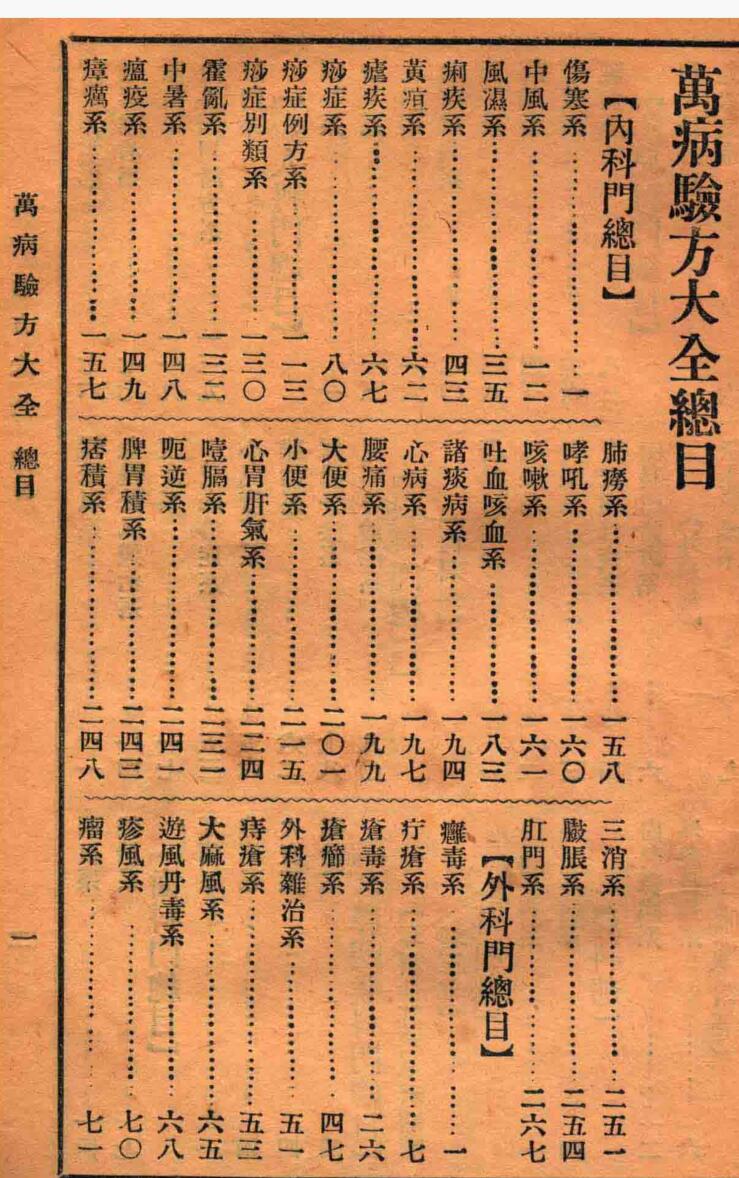 萬病驗方大全總目
【內科門總目】
傷寒系……一
中風系……一二
風濕系……三五
痢疾系……四三
黃疸系……六二
瘧疾系……六七
痧症系……八〇
痧症例方系……一一三
痧症別類系……一三〇
霍亂系……一三二
中暑系……一四八
瘟疫系……一四九
瘴癘系……一五七
肺癆系……一五八
哮吼系……一六〇
咳嗽系……一六一
吐血咳血系……一八三
諸痰病系……一九四
心病系……一九七
腰痛系……一九九
大便系……二〇一
小便系……二一五
心胃肝氣系……二二四
噎膈系……二三一
呃逆系……二四一
脾胃積系……二四三
痞積系……二四八
三消系……二五一
臌脹系……二五四
肛門系……二六七
【外科門總目】
癰毒系……一
疔瘡系……七
瘡毒系……二六
瘡癤系……四七
外科雜治系……五一
痔瘡系……五三
大麻風系……六五
遊風丹毒系……六八
疹風系……七〇
瘤系……七一
萬病驗方大全 總目
一